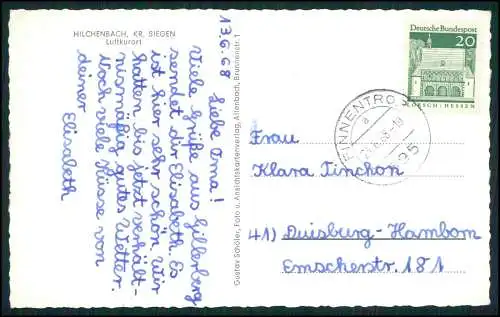 HILCHENBACH, KR. SIEGEN
Luftkurort
13.6.68
Liebe Oma!
Viele Grüße aus Gillerberg
sendet dir Elisabeth. Es
ist hier sehr schön. Wir
hatten bis jetzt verhält-
nismäßig gutes Wetter.
Noch viele Küsse von
deiner
Elisabeth
Gustav Schöler, Foto u. Ansichtskartenverlag, Allenbach, Brunnenstr. 1
Deutsche Bundespost
20
LORSCH/HESSEN
FINNENTROP
a
Frau
Klara Tinchon
41) Duisburg-Hamborn
Emscherstr. 181